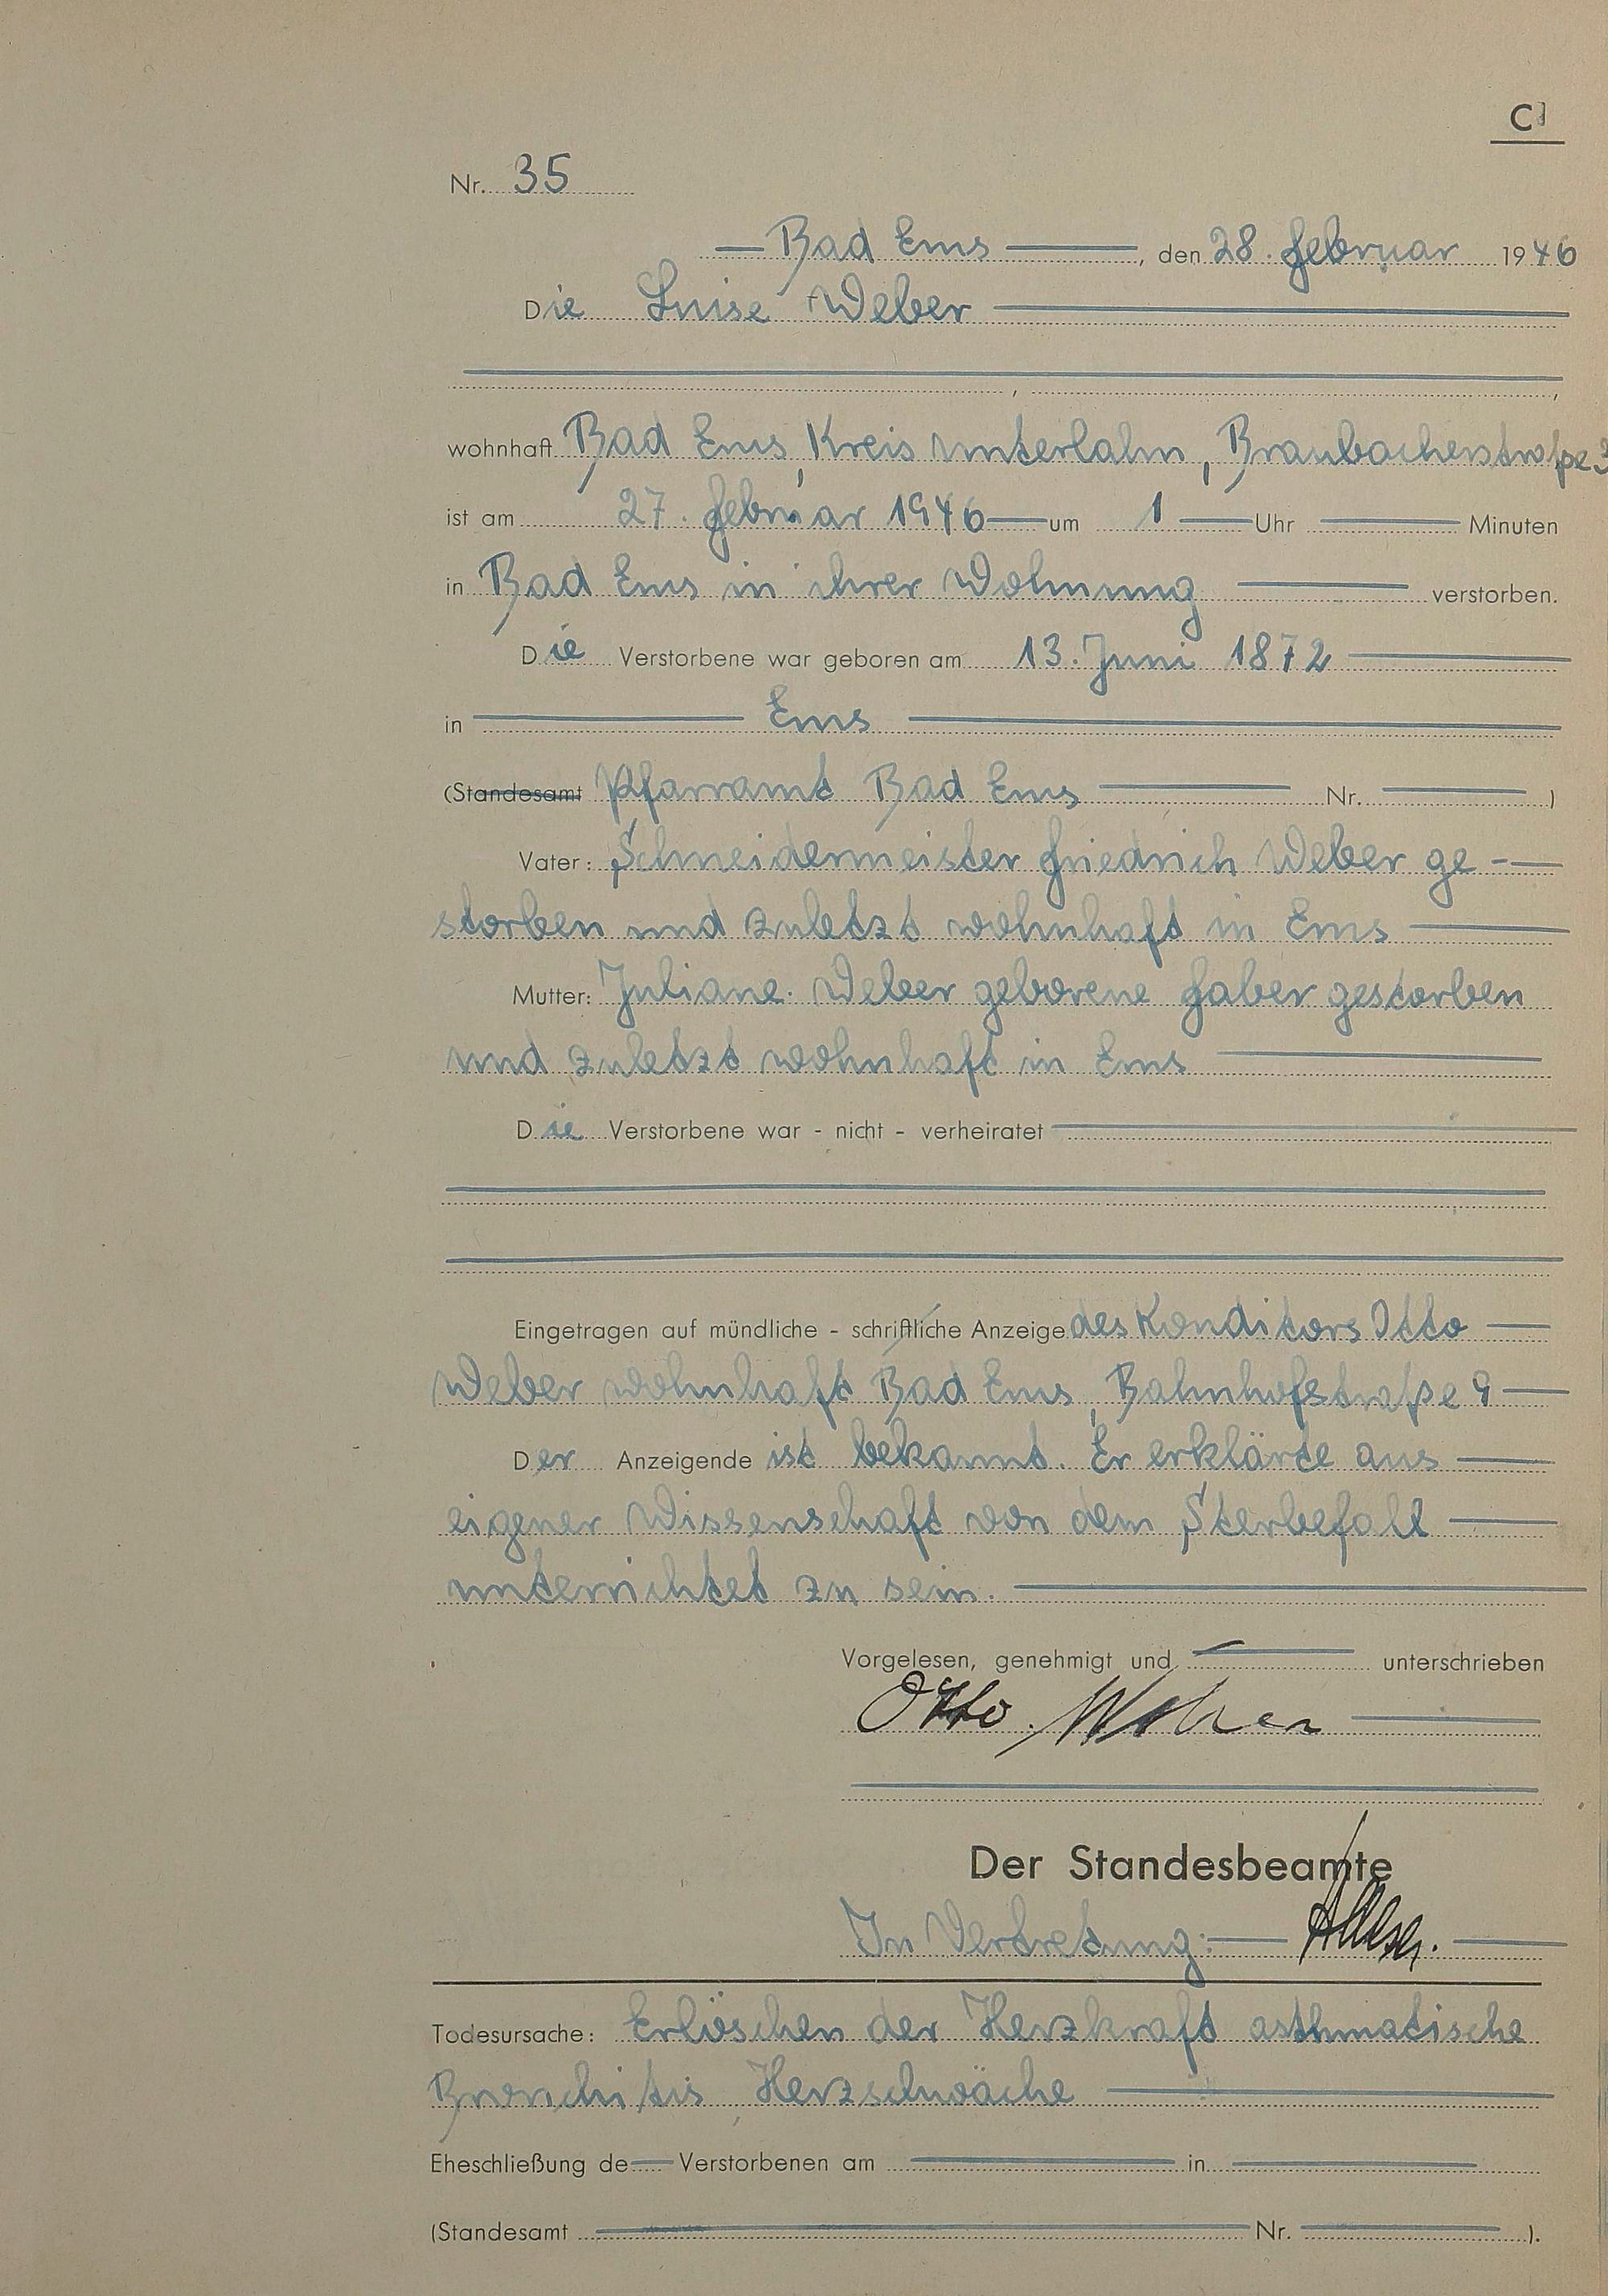 C
Nr. 35
Bad Ems, den 28. Februar 1946
Die Luise Weber
wohnhaft Bad Ems, Kreis Unterlahn, Braubacherstraße
ist am 27. Februar 1946 um 1 Uhr Minuten
in Bad Ems in ihrer Wohnung verstorben.
Die Verstorbene war geboren am 13. Juni 1872
in Ems
(Standesamt Pfarramt Bad Ems Nr. )
Vater: Schneidermeister Friedrich Weber ge-
storben und zuletzt wohnhaft in Ems
Mutter: Juliane Weber geborene Faber gestorben
und zuletzt wohnhaft in Ems
Die Verstorbene war - nicht - verheiratet
Eingetragen auf mündliche - schriftliche Anzeige des Konditors Otto
Weber wohnhaft Bad Ems, Bahnhofstraße 9
Der Anzeigende ist bekannt. Er erklärte aus
eigener Wissenschaft von dem Sterbefall
unterrichtet zu sein.
Vorgelesen, genehmigt und unterschrieben
Otto Weber
Der Standesbeamte
In Vertretung:
Todesursache: Erlöschen der Herzkraft asthmatische
Bronchitis, Herzschwäche
Eheschließung de Verstorbenen am in
(Standesamt Nr. ).